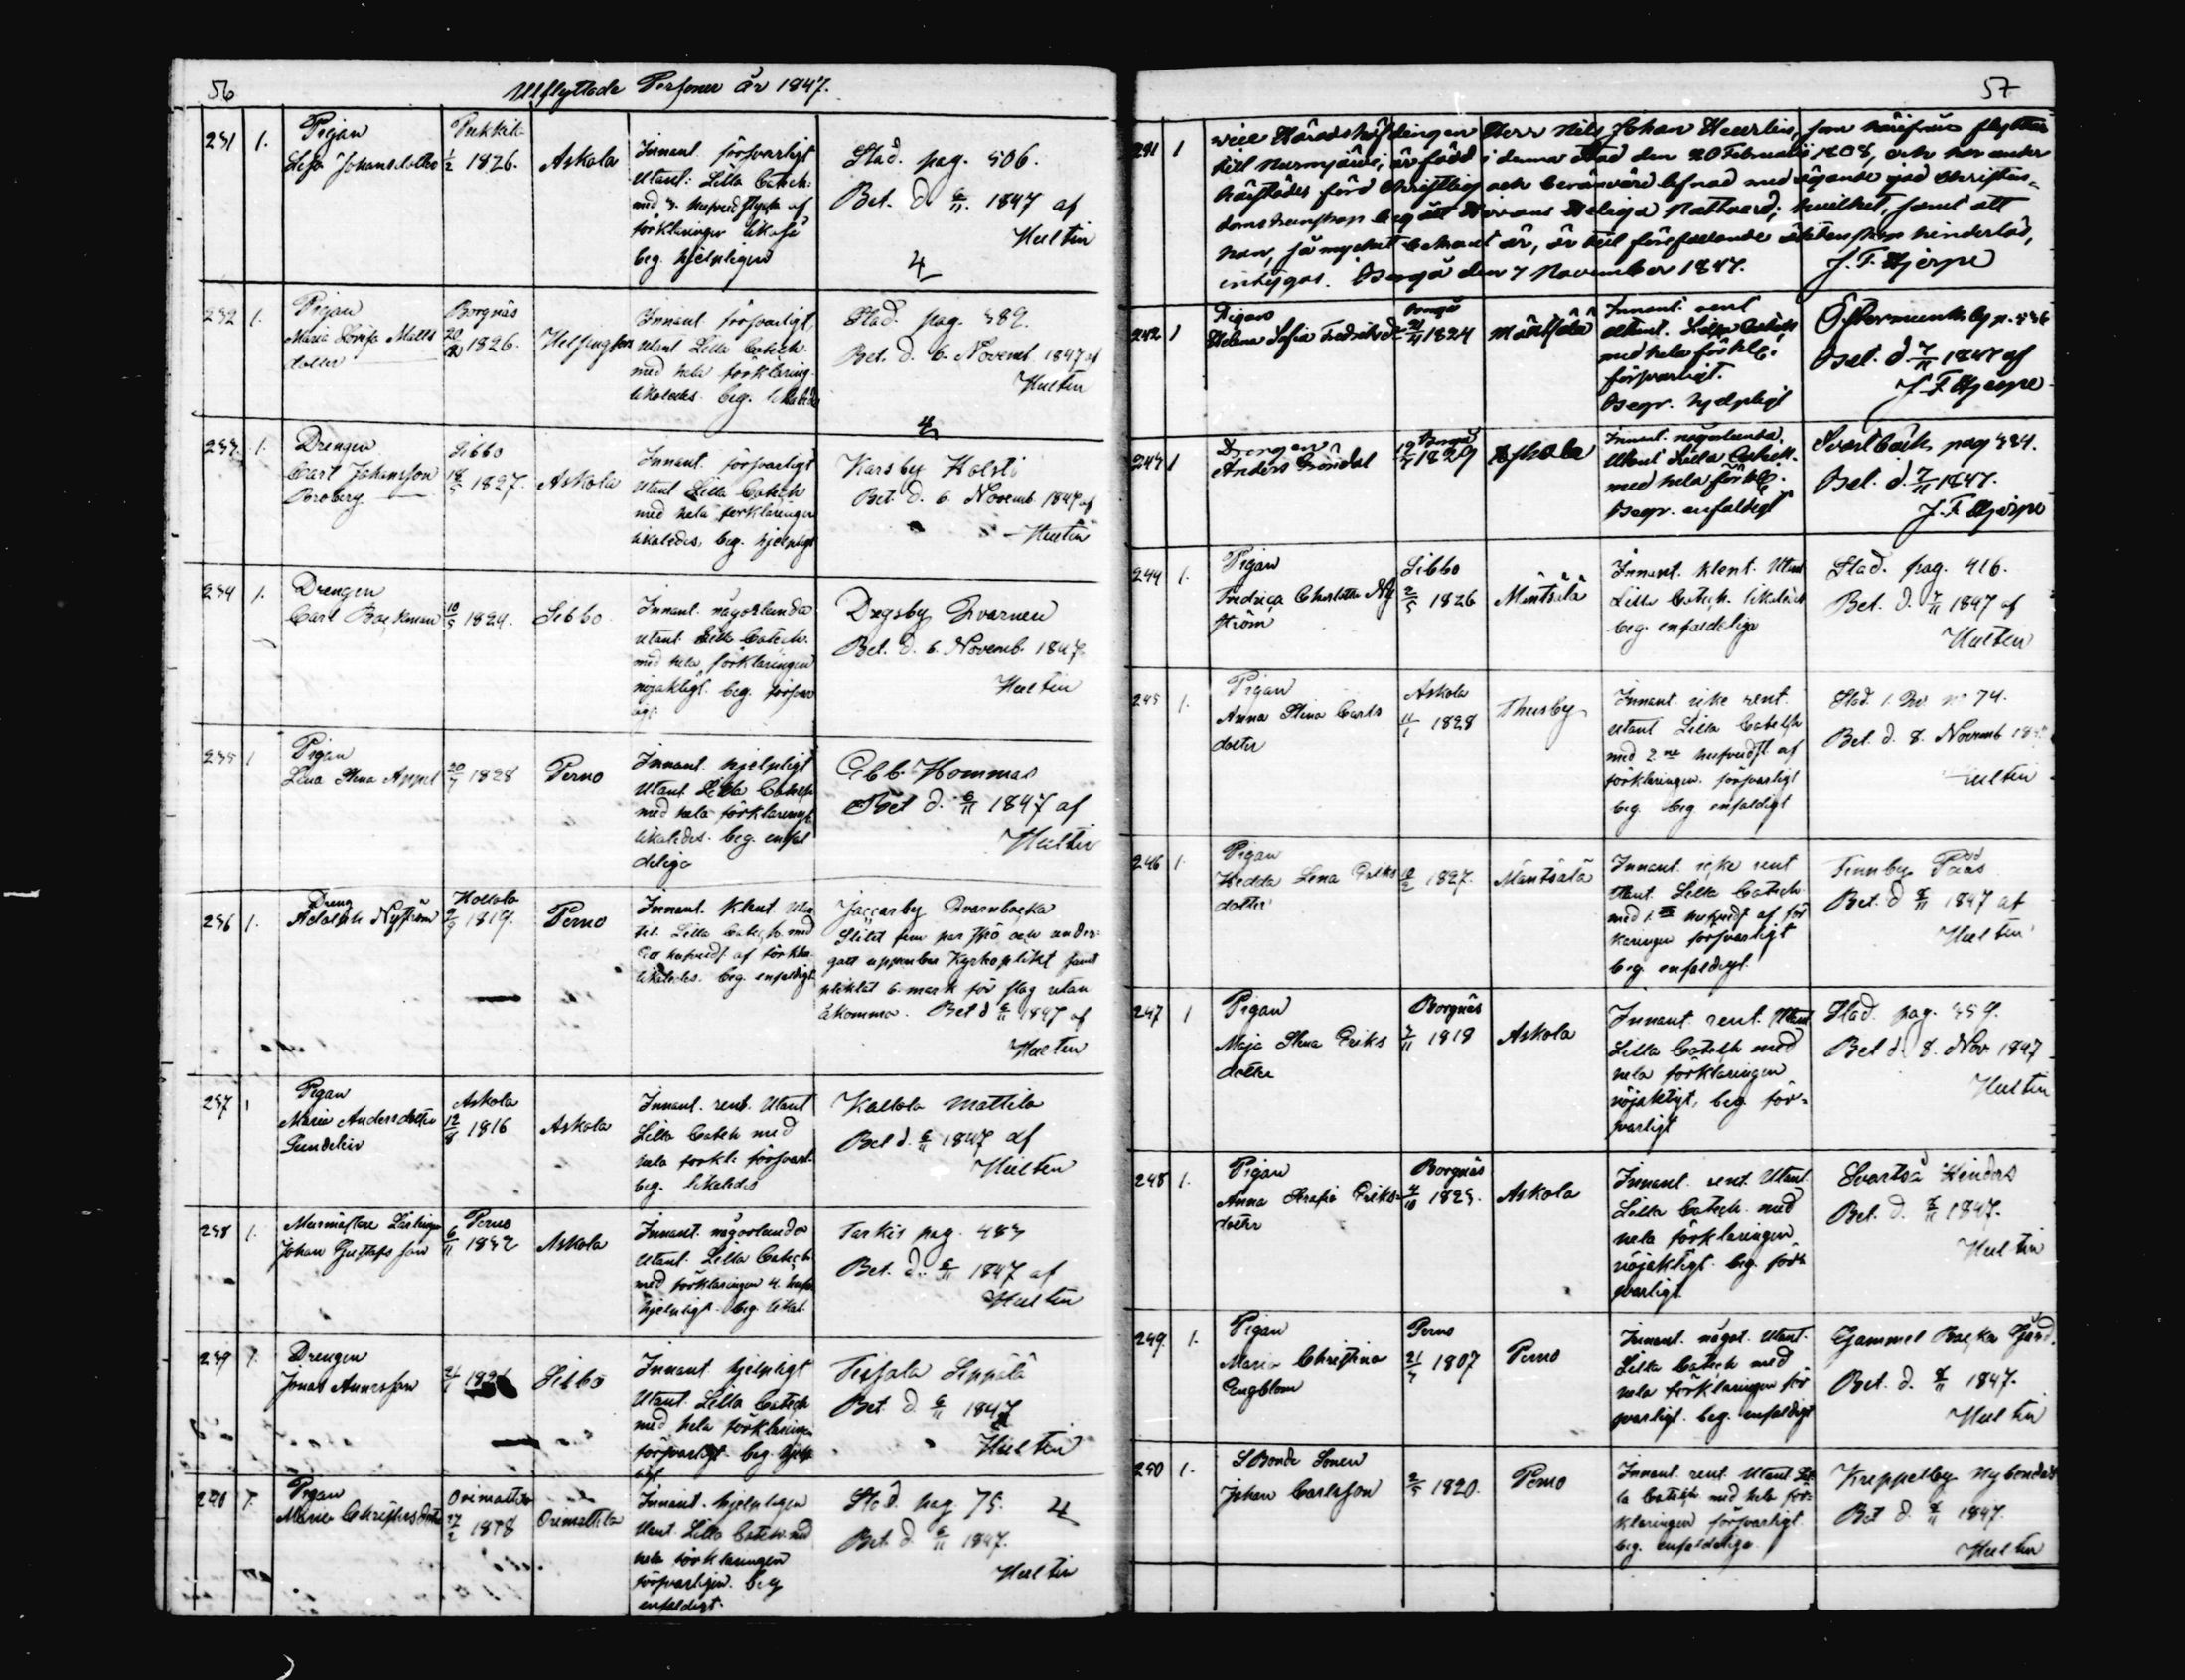 56
Utflyttade Personer år 1847.
231 1. Pigan
Lisa Johansdotter
1/2 1826.
Askola
Innant. försvarligt
Utant: Lilla Catech:
med 3. hufvudstyck af
förklaringen likaså
beg. hjelpligen
Stad. pag. 506.
Bet. d. 6/11. 1847 af
Hultin
4
232 1. Pigan
Maria Lovisa Matts
dotter
Borgnäs
1826.
Helsingfors
Innant. försvarligt,
Utant Lilla Catech.
med hela förklaring.
likaledes. beg. likaledes
Stad. pag. 389.
Bet. d. 6. Novemb. 1847 af
Hultin
4
233 1. Drengen
Carl Johansson
Sibbo
18/5 1827.
Askola
Innant. försvarligt
Utant Lilla Catech
med hela förklaringen
likaledes, beg. hjelpligt
Karsby Holsti
Bet. d. 6. Novemb 1847 af
Hultin
234 1. Drengen
Carl Backman
10/5 1829.
Sibbo
Innant. någorlunda
utant. Lilla Catech.
med hela förklaringen
nöjaktigt. beg. försvar
ligt.
Drägsby Qvarnen
Bet. d. 6. Novemb. 1847
Hultin
235 1 Pigan
Lena Stina Appel
20/7 1828
Perno
Innant. hjelpligt
Utant Lilla Catech
med hela förklaringen
likaledes. beg. enfal
deliga
Ebb. Hommas
Bet d. 6/11 1847 af
Hultin
236 1. Dreng
Adolph Nyström
Hollola
9/9 1819.
Perno
Innant. klent. Utan
till. Lilla Catech. med
hufvudst. af förkla
likaledes. beg. enfaldigt
Jaccarby Qvarnbacka
Slitit fem par spö och under-
gått uppenbar Kyrkoplikt samt
pliktat 6. mark för slag utan
åkomma. Bet d 6/11 1847 af
Hultin
237 1 Pigan
Maria Andersdotter
Sundelin
Askola
12/8 1816
Askola
Innant. rent. Utant
Lilla Catech med
hela förkl: försvarl.
beg. likaledes
Kallola Mattila
Bet d. 6/11 1847 af
Hultin
238 1. Murmästare Lärlingen
Johan Gustafsson
Perno
6/11 1832
Askola
Innant. någorlunda
Utant. Lilla Catech
med förklaringen 4. hufv.
hjelpligt. beg. likal.
Tarkis pag. 483
Bet. d. 6/11 1847 af
Hultin
239 1. Drengen
Jonas Andersson
Sibbo
Innant. hjelpligt
Utant. Lilla Catech
med hela förklaringen
försvarligt. beg. hjelp
ligt
Teisala Seppälä
Bet. d. 6/11 1847
Hultin
240 1. Pigan
Maria Christersdotter
Orimattila
27/2 1828
Orimattila
Innant. hjelpligen
Utant. Lilla Catech. med
hela förklaringen
försvarligen. beg
enfaldigt.
Stad. pag. 75. 4
Bet. d 6/11 1847.
Hultin
57
241 1 vice Häradshöfdingen Herr Nils Johan Heurlin, som härifrån flyttar
till Nurmijärvi, är född i denna Stad den 20 Februarii 1808, och har under
härstädes förd christlig och berömvärd lefnad med ägande god christen-
domskunskap begått Herrans Heliga Nattvard; hvilket, samt att
han, så mycket bekant är, är till förefallande äktenskap hinderlös,
intygas. Borgå den 7 November 1847.
J. F. Hjerpe
242 1 Pigan
Helena Sofia Fredriksd:
Borgå
1824
Mäntsälä
Innant. rent
Utant. Lilla Catech
med hela förkl:
försvarligt.
Begr. hjelpligt
Östermunkby p.
Bet. d. 7/11 1847 af
J. F. Hjerpe
243 1 Drengen
Anders Gröndal
Borgå
1829
Askola
Innant. någorlunda.
Utant Lilla Catech.
med hela förkl:
Begr. enfaldigt
Svartbäck pag 334.
Bet. d. 7/11 1847.
J. F. Hjerpe
244 1. Pigan
Fredrica Charlotta Ny
ström
Sibbo
2/5 1826
Mäntsälä
Innant. klent. Utant
Lilla Catech. likaledes
beg. enfaldeliga
Stad. pag. 416.
Bet. d. 7/11 1847 af
Hultin
245 1. Pigan
Anna Stina Carls
dotter
Askola
11/1 1828
Thusby
Innant. icke rent.
utant Lilla Catech
med 2ne hufvudst. af
förklaringen. försvarligt
beg. beg. enfaldigt
Stad. 1. Qv. no 74.
Bet. d. 8. Novemb
Hultin
246 1. Pigan
Hedda Lena Eriks
dotter
1827.
Mäntsälä
Innant. icke rent
Utant. Lilla Catech.
med 1. hufvudst af för
klaringen försvarligt
beg. enfaldigt.
Finnby Paas
Bet. d 8/11 1847 af
Hultin
247 1 Pigan
Maja Stina Eriks
dotter
Borgnäs
1818
Askola
Innant. rent. Utant
Lilla Catech med
hela förklaringen
nöjaktigt, beg. för-
svarligt
Stad. pag. 359.
Bet d. 8. Nov. 1847
Hultin
248 1. Pigan
Anna Serafia Eriks-
dotter
Borgnäs
4/10 1825.
Askola
Innant. rent. Utant.
Lilla Catech. med
hela förklaringen
nöjaktigt. beg. för-
svarligt
Svartså Hindars
Bet. d. 8/11 1847.
Hultin
249. 1. Pigan
Maria Christina
Engblom
Perno
21/7 1807
Perno
Innant. något. Utant.
Lilla Catech med
hela förklaringen för
svarligt. beg. enfaldigt
Gammel Backa Gård.
Bet. d. 8/11 1847.
Hultin
250 1. S Bonde Sonen
Johan Carlsson
2/5 1820.
Perno
Innant. rent. Utant Lil
la Catech. med hela för-
klaringen försvarligt.
beg. enfaldeliga
Kreppelby Nybondas
Bet d. 8/11 1847.
Hultin